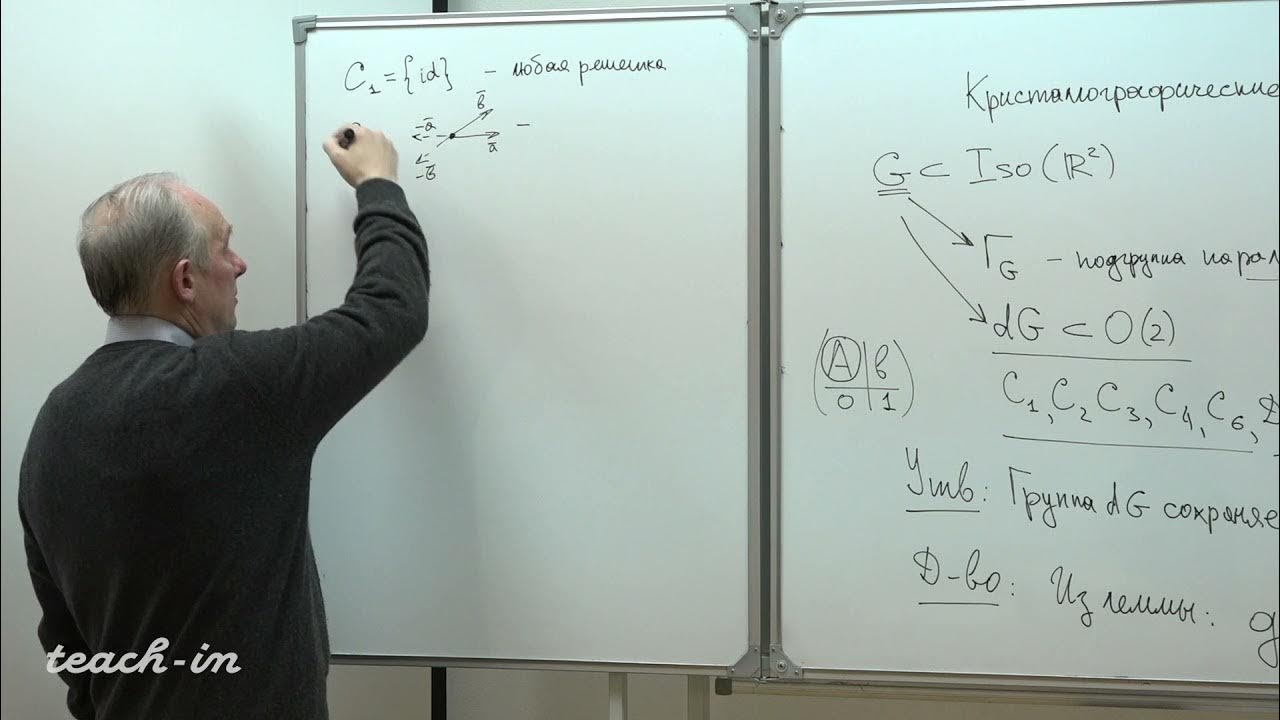 C₁ = {id} – любая решетка
b̄
-ā
ā
–
-b̄
Кристаллографические
G ⊂ Iso(ℝ²)
Γ_G – подгруппа парал
dG ⊂ O(2)
(A | b)
0 | 1
C₁, C₂ C₃, C₄, C₆, D
Утв: Группа dG сохраняе
Д-во: Из леммы: g
teach-in